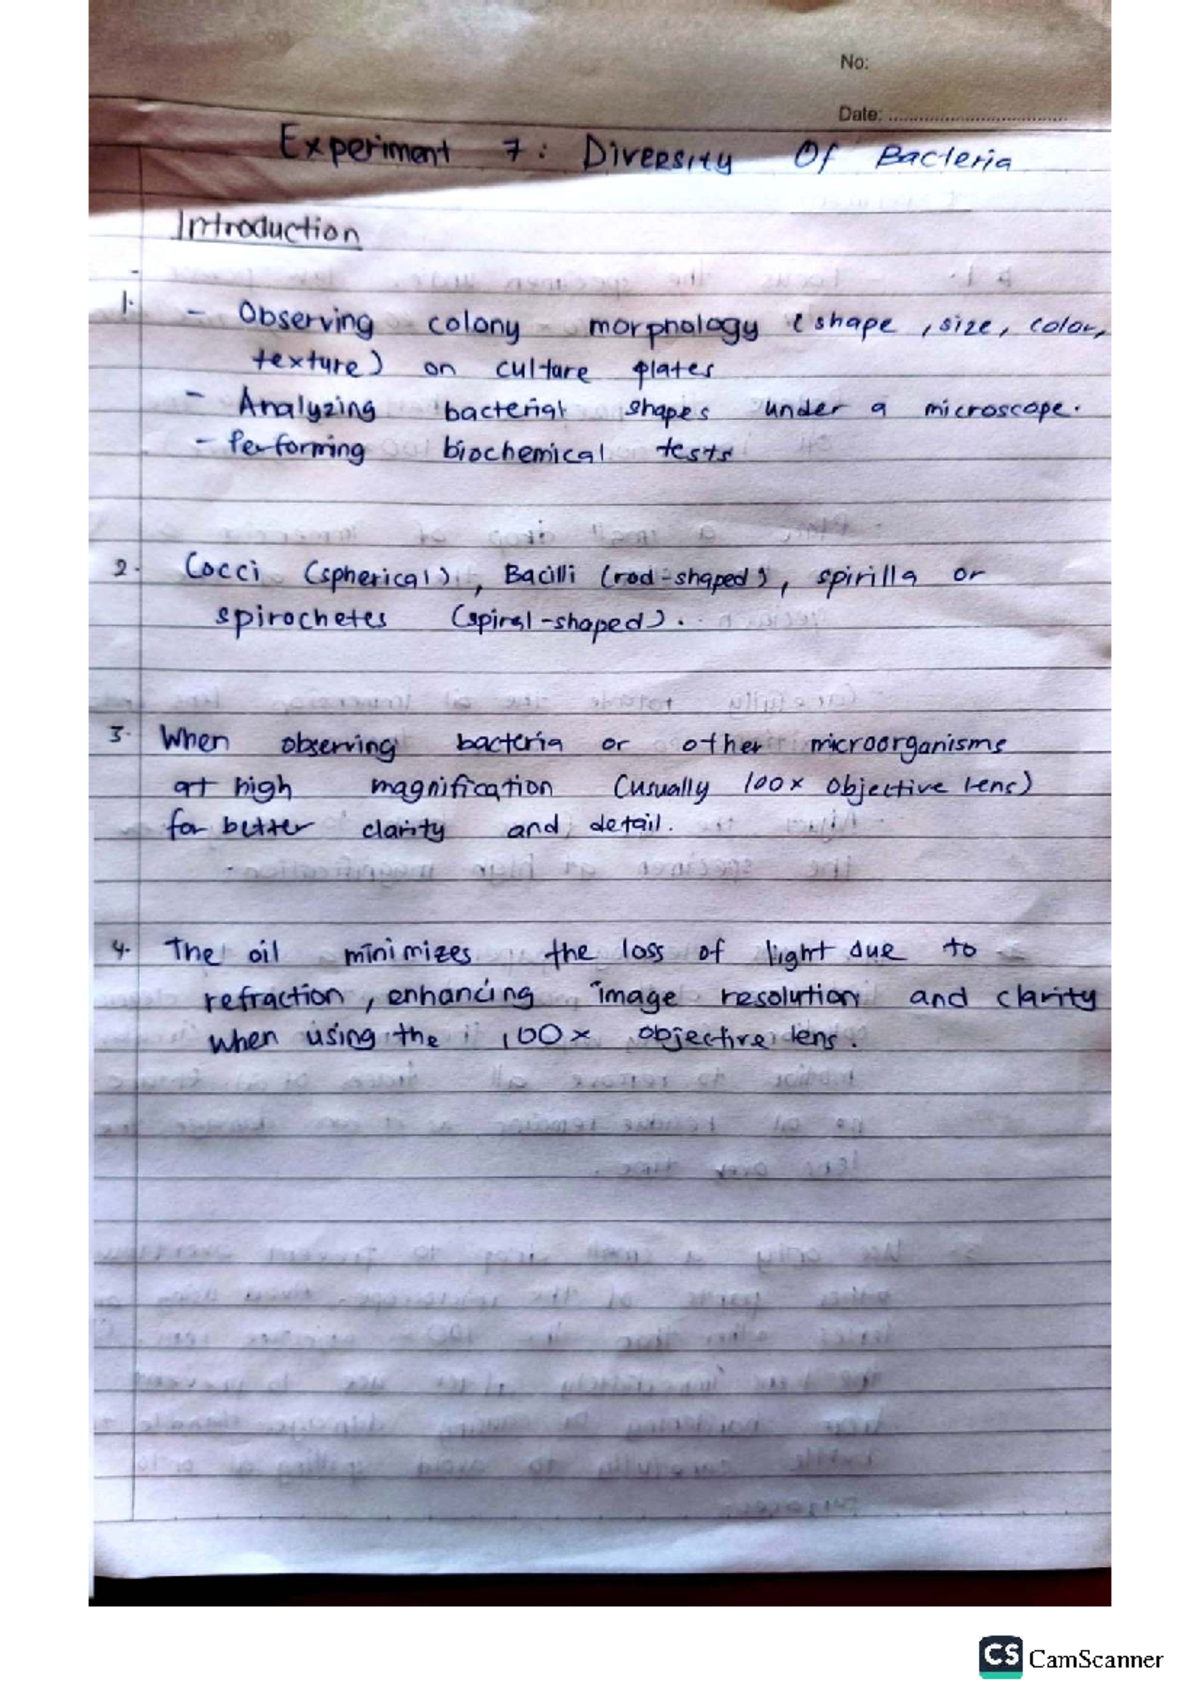 No:
Date:
Experiment 7: Diversity Of Bacteria
Introduction
1. - Observing colony morphology (shape, size, color,
texture) on culture plates
- Analyzing bacterial shapes under a microscope.
- Performing biochemical tests
2. Cocci (spherical), Bacilli (rod-shaped), spirilla or
spirochetes (spiral-shaped).
3. When observing bacteria or other microorganisms
at high magnification (usually 100x objective lens)
for better clarity and detail.
4. The oil minimizes the loss of light due to
refraction, enhancing image resolution and clarity
when using the 100x objective lens.
CS CamScanner